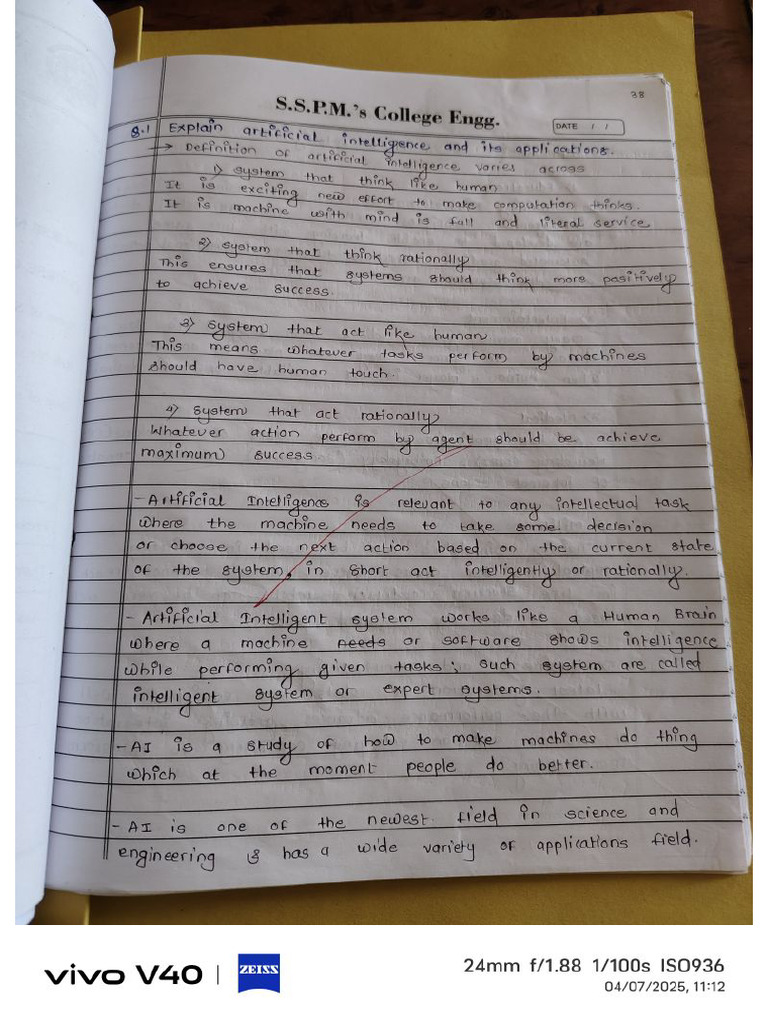 38
S.S.P.M.'s College Engg.
DATE / /
Q.1 Explain artificial intelligence and its applications.
→ Definition of artificial intelligence varies across
1) system that think like human
It is exciting new effort to make computation thinks.
It is machine with mind is full and literal service
2) system that think rationally
This ensures that systems should think more positively
to achieve success.
3) system that act like human
This means whatever tasks perform by machines
should have human touch.
4) system that act rationally
Whatever action perform by agent should be achieve
maximum success.
- Artificial Intelligence is relevant to any intellectual task
where the machine needs to take some decision
or choose the next action based on the current state
of the system, in short act intelligently or rationally.
- Artificial Intelligent system works like a Human Brain
where a machine needs or software shows intelligence
while performing given tasks; such system are called
intelligent system or expert systems.
- AI is a study of how to make machines do thing
which at the moment people do better.
- AI is one of the newest field in science and
engineering & has a wide variety of applications field.
vivo V40 | ZEISS
24mm f/1.88 1/100s ISO936
04/07/2025, 11:12